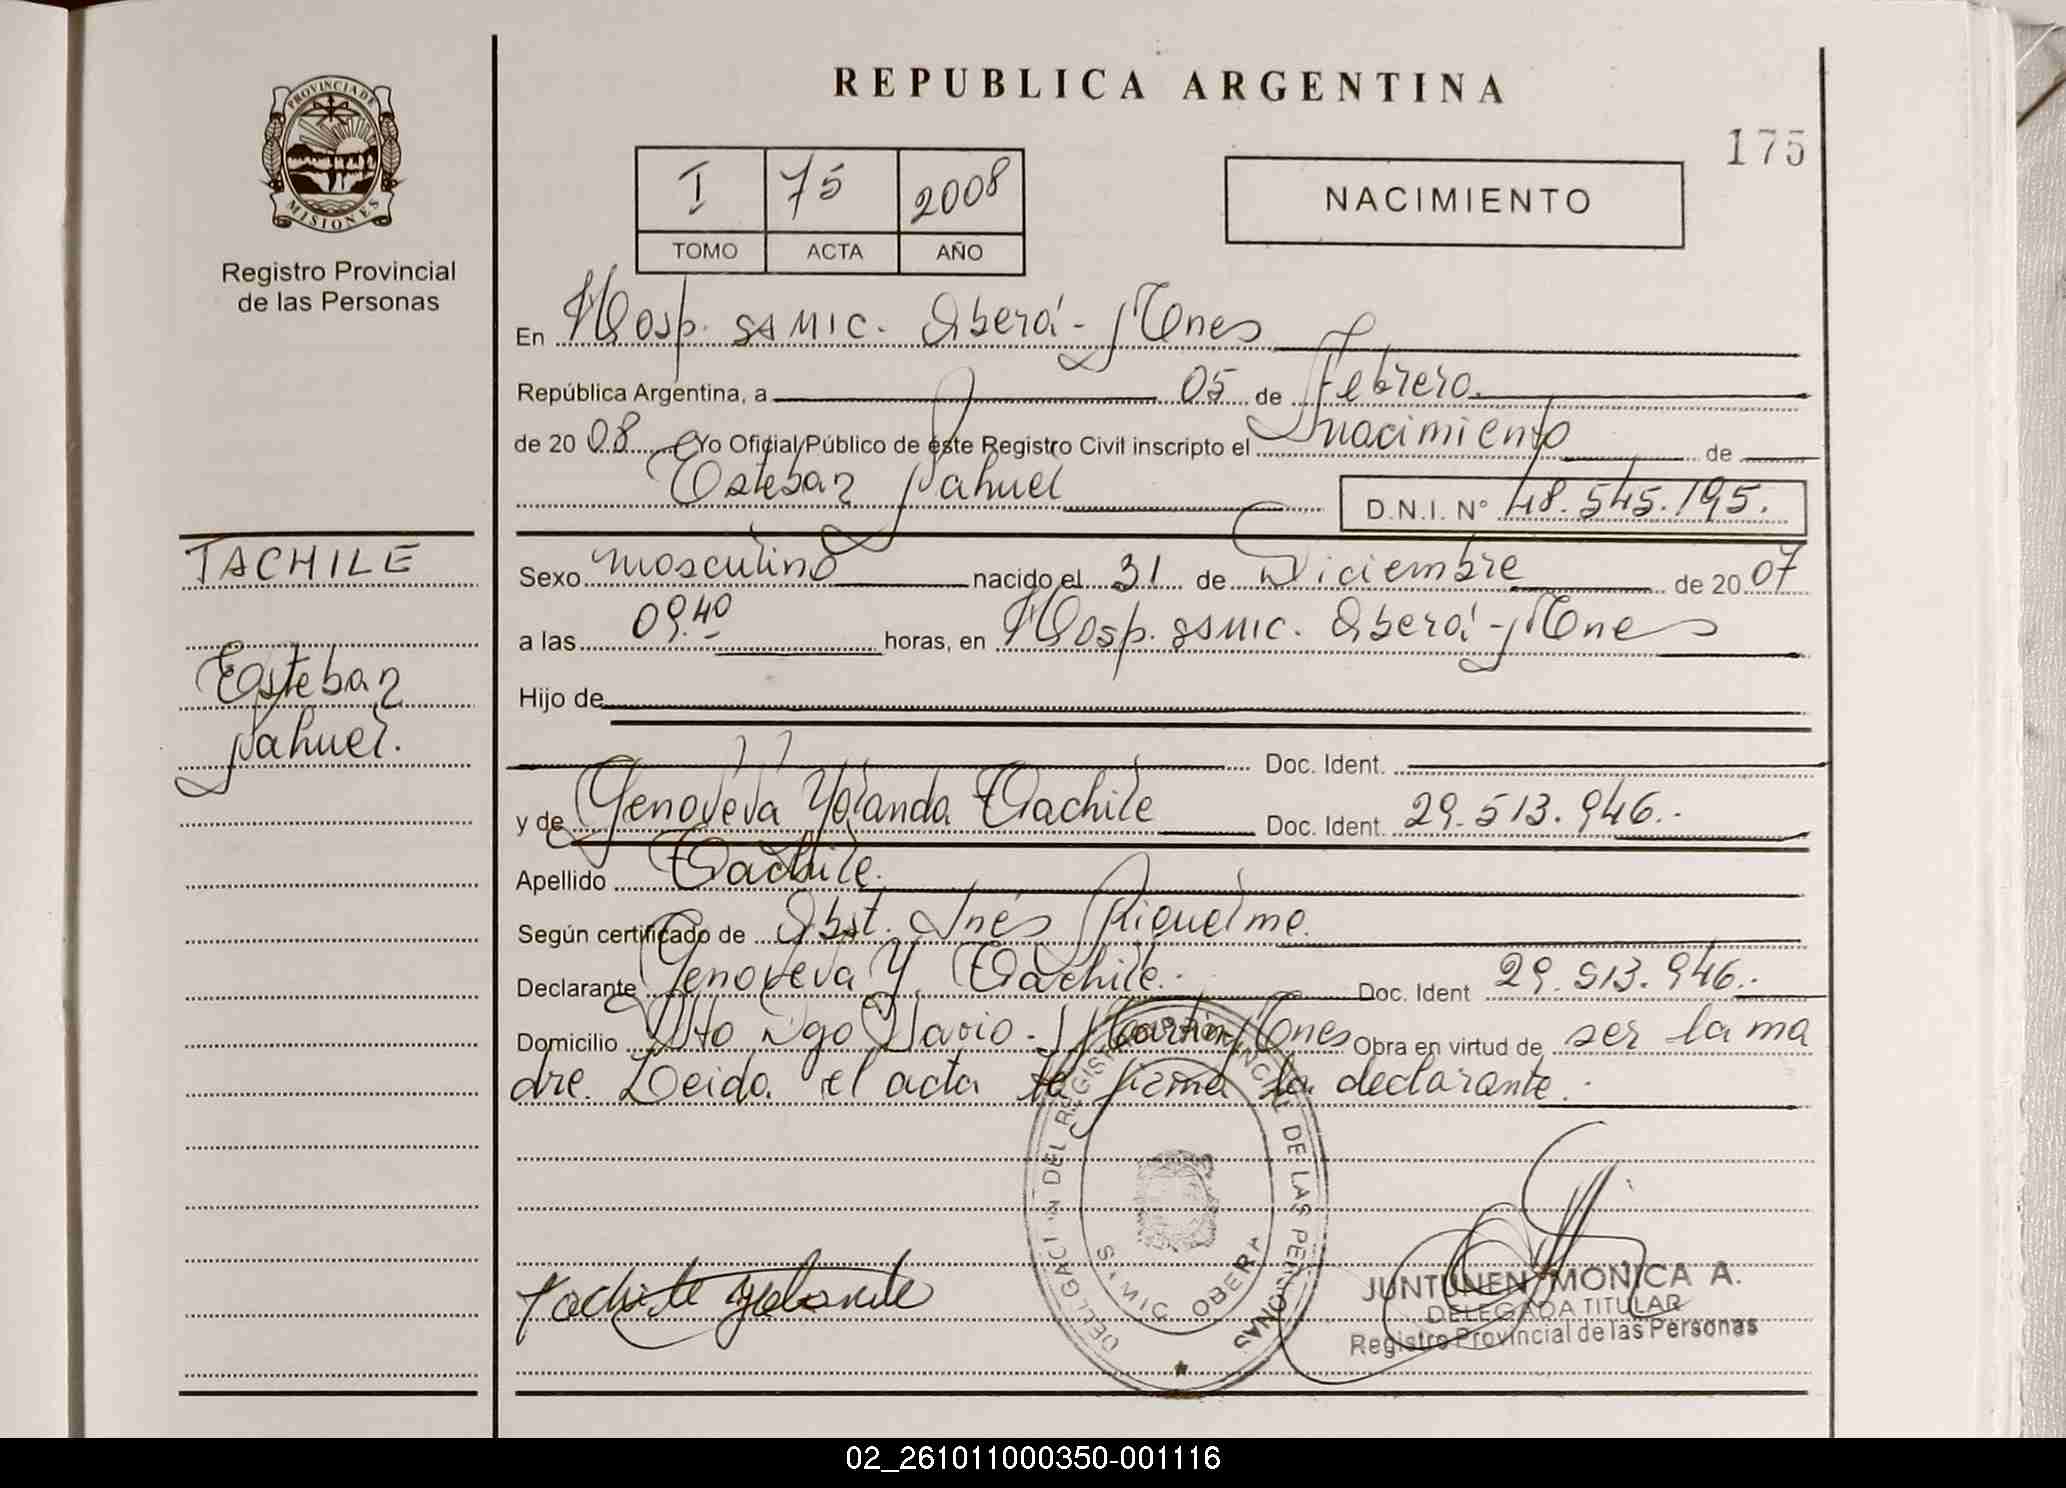 REPUBLICA ARGENTINA
175
PROVINCIA DE
MISIONES
Registro Provincial
de las Personas
I 75 2008
TOMO ACTA AÑO
NACIMIENTO
En Hosp. SAMIC. Oberá - Mnes
República Argentina, a 05 de Febrero
de 2008 Yo Oficial Público de este Registro Civil inscripto el nacimiento de
Esteban Nahuel D.N.I. Nº 48.545.195.
TACHILE
Esteban
Nahuel.
Sexo masculino nacido el 31 de Diciembre de 2007
a las 09.40 horas, en Hosp. SAMIC. Oberá - Mnes
Hijo de
Doc. Ident.
y de Genoveva Yolanda Tachile Doc. Ident. 29.513.946.-
Apellido Tachile.
Según certificado de Obst. Inés Riquelme.
Declarante Genoveva Y. Tachile.- Doc. Ident 29.513.946.-
Domicilio Dgo Savio - Martir Mnes Obra en virtud de ser la ma
dre. Leida el acta la firma la declarante.-
DELEGACION DEL REGISTRO PROVINCIAL DE LAS PERSONAS
SAMIC OBERA
Tachile Yolanda
JUNTUNEN MONICA A.
DELEGADA TITULAR
Registro Provincial de las Personas
02_261011000350-001116